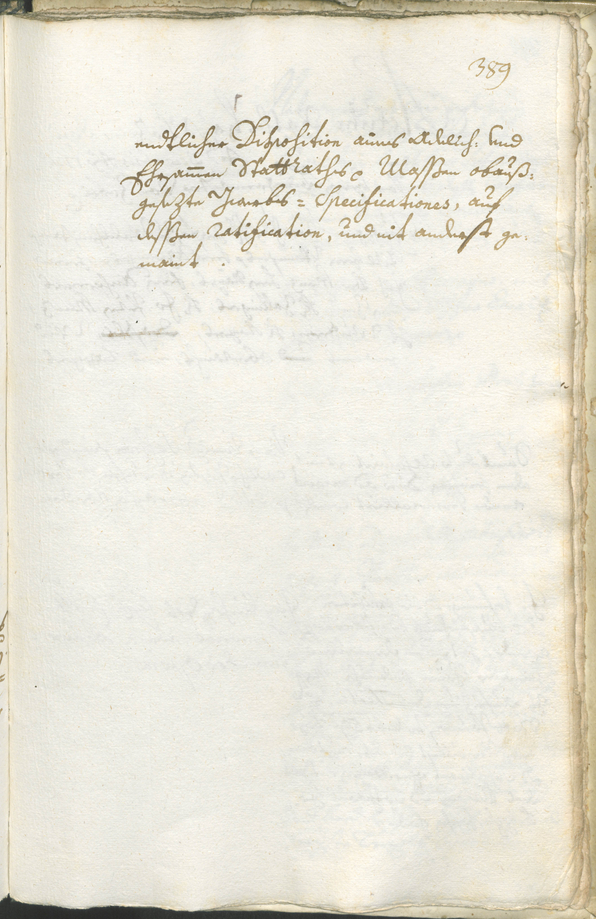 389
endtlicher Disposition aines Adelich: und
Ehrsamen Stattraths. Massen obauß-
gesezte Specificationes, auf
dessen ratification, und nit anderst ge-
maint.